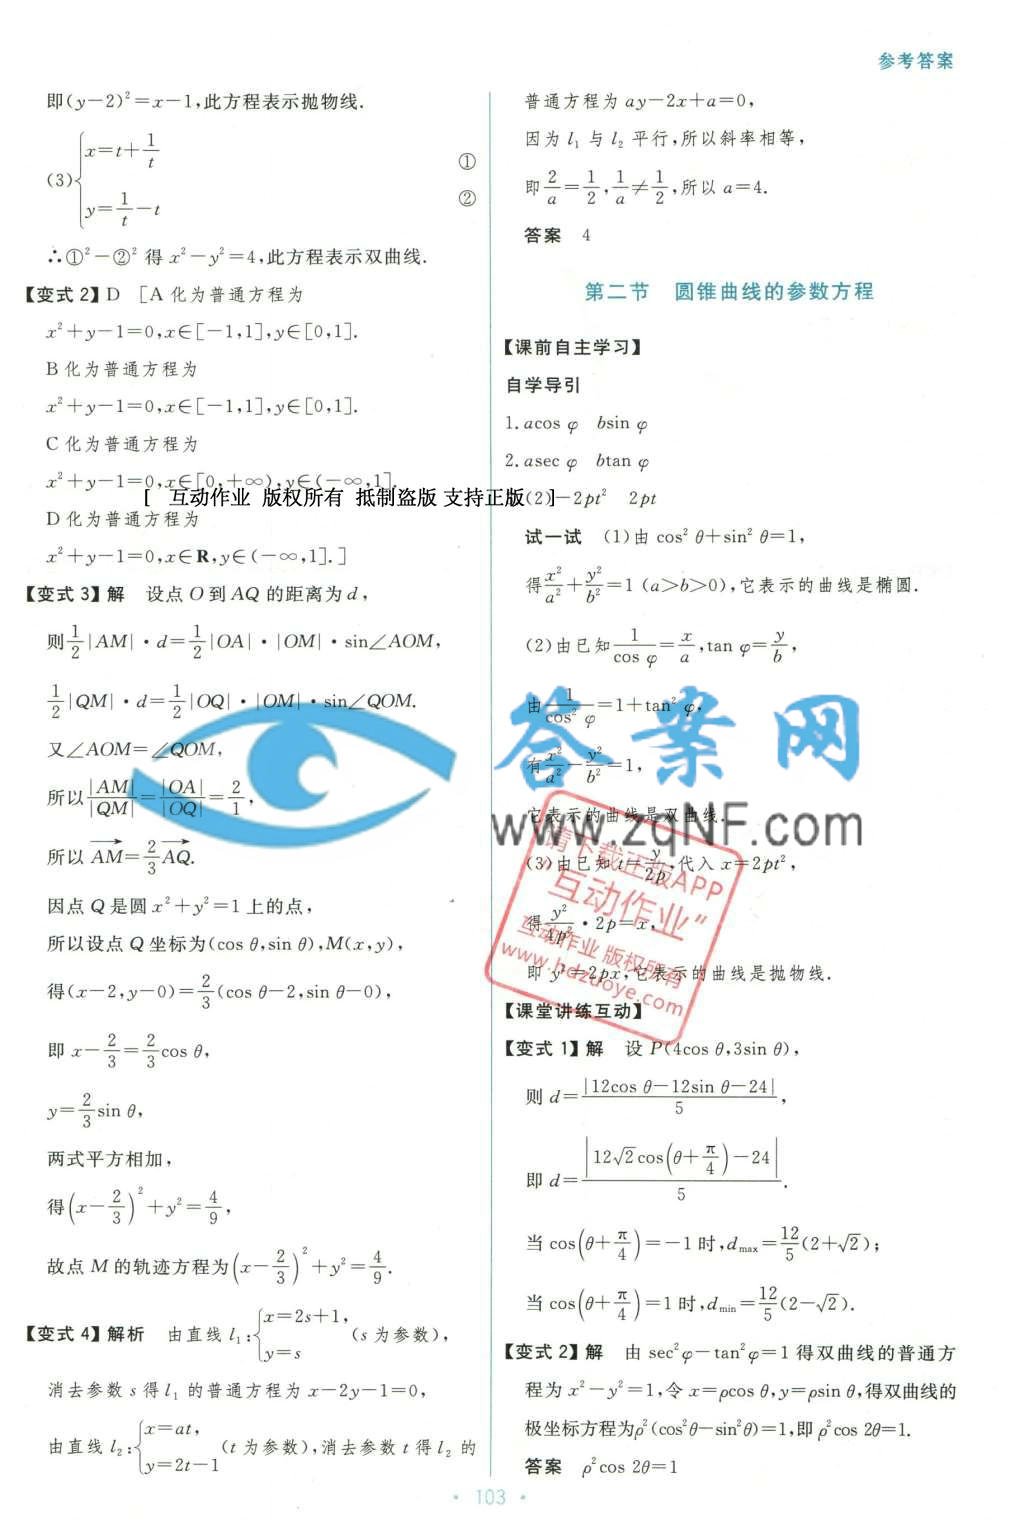 参考答案
即(y-2)²=x-1,此方程表示抛物线.
(3){x=t+1/t ①
y=1/t-t ②
∴①²-②² 得 x²-y²=4,此方程表示双曲线.
【变式 2】D [A 化为普通方程为
x²+y-1=0,x∈[-1,1],y∈[0,1].
B 化为普通方程为
x²+y-1=0,x∈[-1,1],y∈[0,1].
C 化为普通方程为
x²+y-1=0,x∈[0,+∞),y∈(-∞,1].
[ 互动作业 版权所有 抵制盗版 支持正版 ]
D 化为普通方程为
x²+y-1=0,x∈R,y∈(-∞,1].]
【变式 3】解 设点 O 到 AQ 的距离为 d,
则1/2|AM|·d=1/2|OA|·|OM|·sin∠AOM,
1/2|QM|·d=1/2|OQ|·|OM|·sin∠QOM.
又∠AOM=∠QOM,
所以|AM|/|QM|=|OA|/|OQ|=2/1,
所以 AM→=2/3 AQ→.
因点 Q 是圆 x²+y²=1 上的点,
所以设点 Q 坐标为(cos θ,sin θ),M(x,y),
得(x-2,y-0)=2/3(cos θ-2,sin θ-0),
即 x-2/3=2/3cos θ,
y=2/3sin θ,
两式平方相加,
得(x-2/3)²+y²=4/9,
故点 M 的轨迹方程为(x-2/3)²+y²=4/9.
【变式 4】解析 由直线 l₁:{x=2s+1,
y=s (s 为参数),
消去参数 s 得 l₁ 的普通方程为 x-2y-1=0,
由直线 l₂:{x=at,
y=2t-1 (t 为参数),消去参数 t 得 l₂ 的
普通方程为 ay-2x+a=0,
因为 l₁ 与 l₂ 平行,所以斜率相等,
即2/a=1/2,1/a≠1/2,所以 a=4.
答案 4
第二节 圆锥曲线的参数方程
【课前自主学习】
自学导引
1.acos φ bsin φ
2.asec φ btan φ
(2)-2pt² 2pt
试一试 (1)由 cos² θ+sin² θ=1,
得x²/a²+y²/b²=1 (a>b>0),它表示的曲线是椭圆.
(2)由已知1/cos φ=x/a,tan φ=y/b,
由1/cos² φ=1+tan² φ,
有x²/a²-y²/b²=1,
它表示的曲线是双曲线.
(3)由已知 t=y/2p,代入 x=2pt²,
得y²/4p²·2p=x,
即 y²=2px,它表示的曲线是抛物线.
【课堂讲练互动】
【变式 1】解 设 P(4cos θ,3sin θ),
则 d=|12cos θ-12sin θ-24|/5,
即 d=|12√2cos(θ+π/4)-24|/5.
当 cos(θ+π/4)=-1 时,dmax=12/5(2+√2);
当 cos(θ+π/4)=1 时,dmin=12/5(2-√2).
【变式 2】解 由 sec²φ-tan²φ=1 得双曲线的普通方
程为 x²-y²=1,令 x=ρcos θ,y=ρsin θ,得双曲线的
极坐标方程为ρ²(cos²θ-sin²θ)=1,即 ρ²cos 2θ=1.
答案 ρ²cos 2θ=1
答案网
www.zqNF.com
请下载正版APP
"互动作业"
互动作业 版权所有
www.hdzuoye.com
· 103 ·